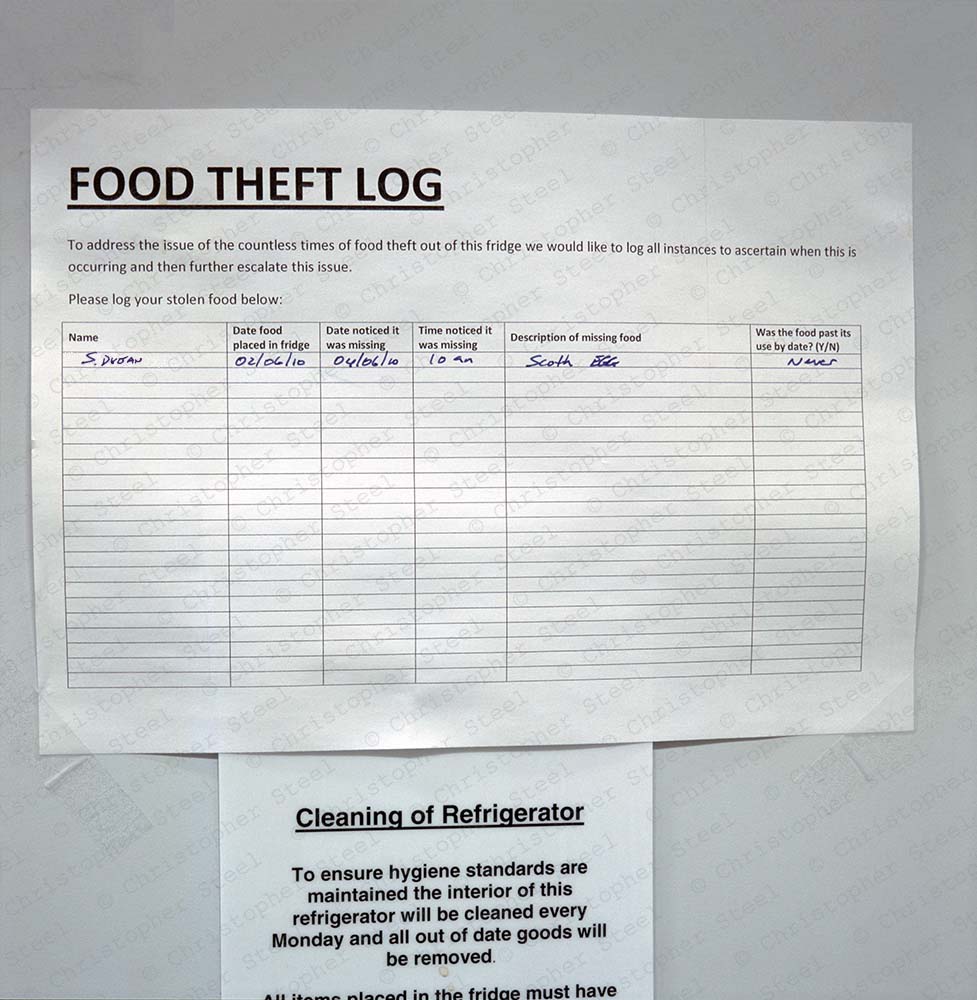 FOOD THEFT LOG
To address the issue of the countless times of food theft out of this fridge we would like to log all instances to ascertain when this is
occurring and then further escalate this issue.
Please log your stolen food below:
Name
Date food
placed in fridge
Date noticed it
was missing
Time noticed it
was missing
Description of missing food
Was the food past its
use by date? (Y/N)
S. 02/06/10 04/06/10 10 am Scoth EGG Never
Cleaning of Refrigerator
To ensure hygiene standards are
maintained the interior of this
refrigerator will be cleaned every
Monday and all out of date goods will
be removed.
All items placed in the fridge must have
© Christopher Steel